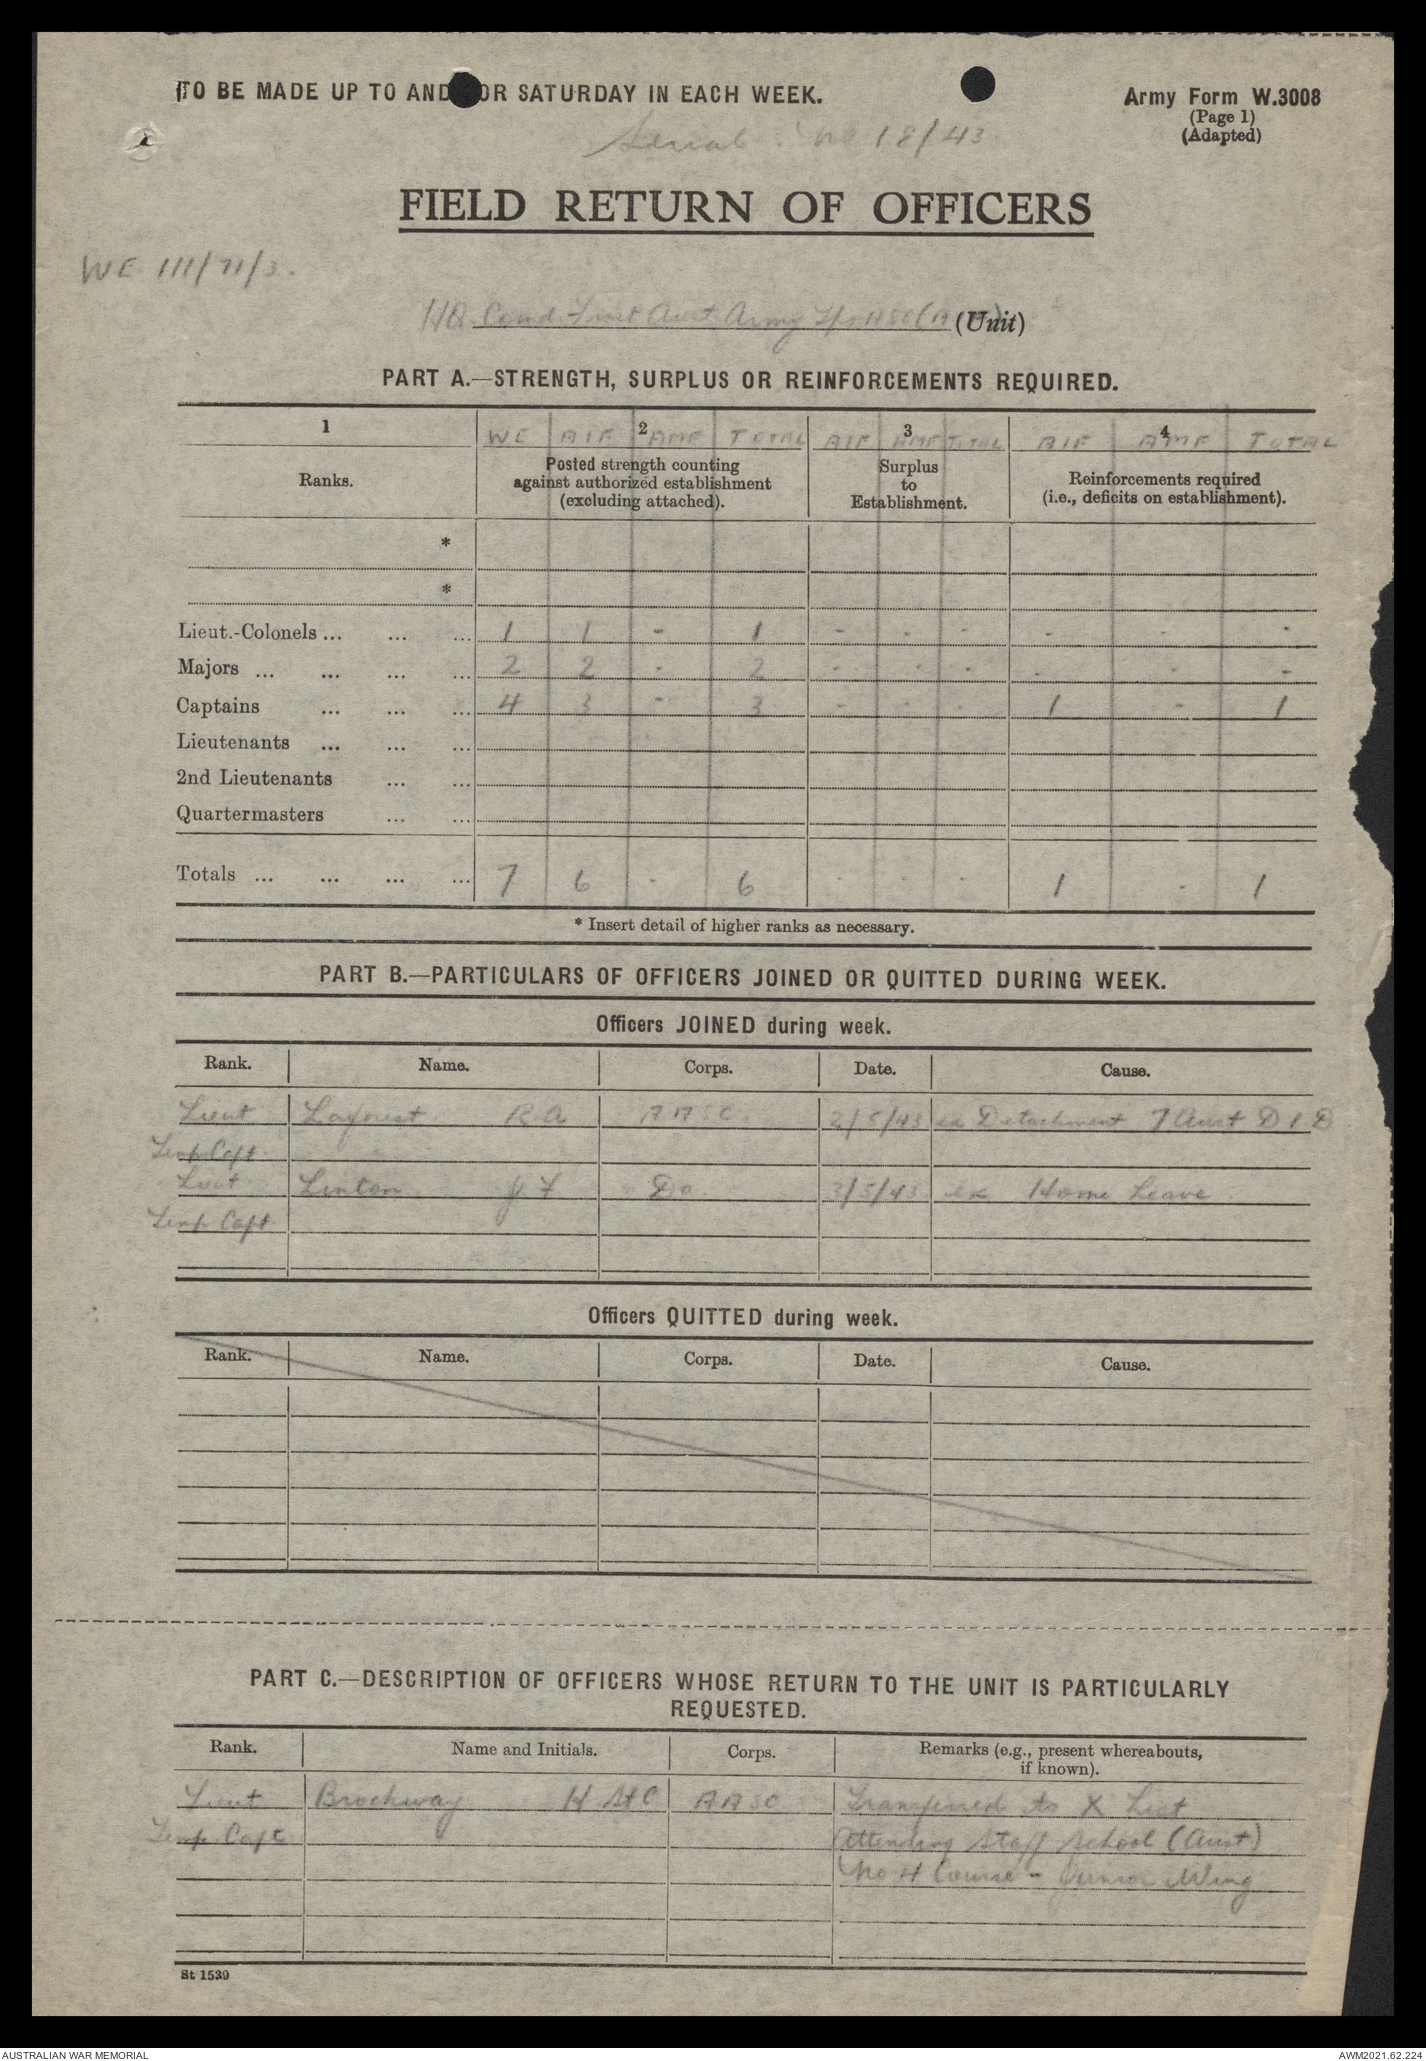 TO BE MADE UP TO AND FOR SATURDAY IN EACH WEEK.
Army Form W.3008
(Page 1)
(Adapted)
Serial No 18/43
FIELD RETURN OF OFFICERS
WE 111/71/3.
HQ Comd First Aust Army Tps AASC (Unit)
PART A.—STRENGTH, SURPLUS OR REINFORCEMENTS REQUIRED.
1 2 3 4
WE AIF AMF TOTAL AIF AMF TOTAL AIF AMF TOTAL
Ranks.
Posted strength counting against authorized establishment (excluding attached).
Surplus to Establishment.
Reinforcements required (i.e., deficits on establishment).
*
*
Lieut.-Colonels ... ... ... 1 1 - 1 - - - - - -
Majors ... ... ... ... 2 2 - 2 - - - - - -
Captains ... ... ... 4 3 - 3 - - - 1 - 1
Lieutenants ... ... ...
2nd Lieutenants ... ...
Quartermasters ... ...
Totals ... ... ... ... 7 6 - 6 - - - 1 - 1
* Insert detail of higher ranks as necessary.
PART B.—PARTICULARS OF OFFICERS JOINED OR QUITTED DURING WEEK.
Officers JOINED during week.
Rank. Name. Corps. Date. Cause.
Lieut Laforest R A AASC 2/5/43 ex Detachment 7 Aust D I D
Temp Capt
Lieut Linton J F Do 3/5/43 ex Home Leave
Temp Capt
Officers QUITTED during week.
Rank. Name. Corps. Date. Cause.
PART C.—DESCRIPTION OF OFFICERS WHOSE RETURN TO THE UNIT IS PARTICULARLY
REQUESTED.
Rank. Name and Initials. Corps. Remarks (e.g., present whereabouts,
if known).
Lieut Brockway H StC AASC Transferred to X List
Temp Capt Attending Staff School (Aust)
No 4 Course - Junior Wing
St 1539
AUSTRALIAN WAR MEMORIAL
AWM2021.62.224